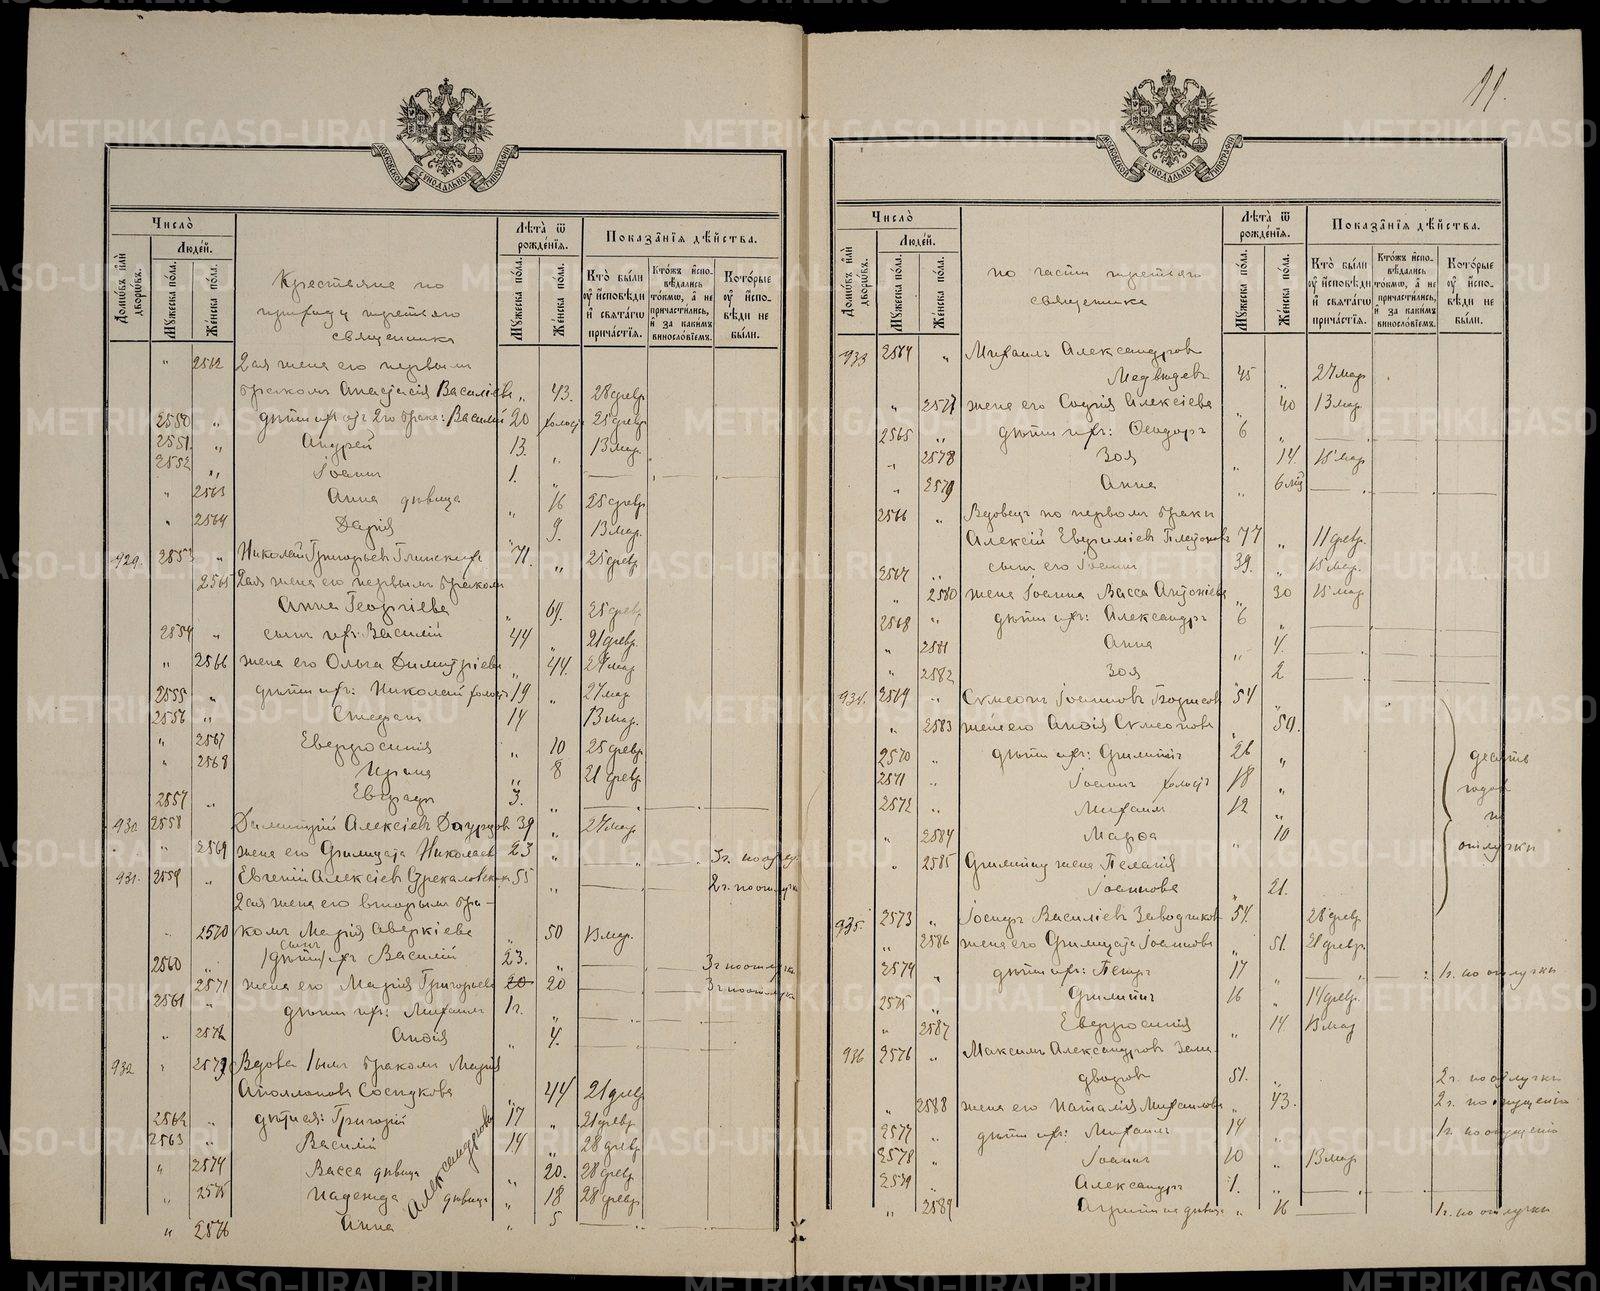 99.
МОСКОВСКОЙ СѴНОДАЛЬНОЙ ТИПОГРАФІИ
Число̀
Людей.
Домѡвъ и҆лѝ дворѡвъ.
Мꙋжеска по́ла.
Же́нска по́ла.
Крестьяне по
приходу третьяго
священника
Лѣ́та ѿ рожде́нїѧ.
Мꙋжеска по́ла.
Же́нска по́ла.
Показа̑нїѧ дѣ́йства.
Кто̀ бы́ли оу҆ и҆сповѣди и҆ свѧта́гѡ прича́стїѧ.
Кто́жъ и҆спо-вѣдались то́кмѡ, а҆ не причасти́лись, и҆ за каки́мъ виносло́вїемъ.
Кото́рые оу҆ и҆спо-вѣди не бы́ли.
" 2562 2ая жена его первымъ
бракомъ Анастасія Васильев " 43. 28 февр
2550 " дѣти ихъ отъ 2го брака: Василій 20 холостъ 25 февр
2551. " Андрей 13. " 13 мар.
2552 " Іоаннъ 1. "
" 2563 Анна дѣвица " 16 25 февр
" 2564 Дарія " 9. 13 мар.
929. 2553 " Николай Григорьев Глинскихъ 71. " 25 февр
2565 2ая жена его первымъ бракомъ
Анна Георгіева " 69. 25 февр
2554 " сынъ ихъ: Василій 44 " 21 февр
" 2566 жена его Ольга Димитріева " 44. 27 мар
2555 " дѣти ихъ: Николай холостъ 19 " 27 мар
2556 " Стефанъ 14 " 13 мар.
" 2567 Евфросинія " 10 25 февр
" 2568 Ирина " 8 21 февр
2557 " Евграфъ 3. "
930 2558 Димитрій Алексіев 39 " 27 мар
" 2569 жена его Филицата Николаев 23 " 3 г. по отлу
931. 2559 " Евгеній Алексіев Стрекаловских 55 " 2 г. по отлучк
2ая жена его вторымъ бра-
" 2570 комъ Марія Аверкіева " 50 13 мар.
сынъ
2560 " /дѣти/ ихъ Василій 23. " 3 г по отлучк
2571 жена его Марія Григорьева 20 20 3 г по отлучк
2561 " дѣти ихъ: Михаилъ 1 г. "
" 2572 Анфія 4.
932 " 2573 Вдова 1ымъ бракомъ Марія
Аполлонова Соснукова " 44 21 февр
2562 " дѣти ея: Григорій 17 " 21 февр
2563 " Василій 14 " 28 февр
" 2574 Васса дѣвица " 20. 28 февр
" 2575 Надежда дѣвица " 18 28 февр
Александровы
" 2576 Анна " 5
МОСКОВСКОЙ СѴНОДАЛЬНОЙ ТИПОГРАФІИ
Число̀
Людей.
Домѡвъ и҆лѝ дворѡвъ.
Мꙋжеска по́ла.
Же́нска по́ла.
по части третьяго
священника
Лѣ́та ѿ рожде́нїѧ.
Мꙋжеска по́ла.
Же́нска по́ла.
Показа̑нїѧ дѣ́йства.
Кто̀ бы́ли оу҆ и҆сповѣди и҆ свѧта́гѡ прича́стїѧ.
Кто́жъ и҆спо-вѣдались то́кмѡ, а҆ не причасти́лись, и҆ за каки́мъ виносло́вїемъ.
Кото́рые оу҆ и҆спо-вѣди не бы́ли.
933 2564 " Михаилъ Александров
Медвѣдевъ 45 " 27 мар
" 2577 жена его Софія Алексіева " 40 13 мар
2565 " дѣти ихъ: Ѳеодоръ 6 "
" 2578 Зоя " 14 15 мар
" 2579 Анна " 6 мѣс
2566 " Вдовецъ по первомъ бракѣ
Алексій Евфиміев Платонов 77 " 11 февр.
2567 " сынъ его Іоаннъ 39. " 15 мар.
" 2580 жена Іоанна Васса Антоніева " 30 15 мар
2568 " дѣти ихъ: Александръ 6 "
" 2581 Анна " 4.
" 2582 Зоя " 2
934. 2569 " Сѵмеонъ Іоаннов Борисов 54 "
" 2583 жена его Анфія Сѵмеонова " 50.
2570 " дѣти ихъ: Филиппъ 26 "
2571 " Іоаннъ холостъ 18 "
2572 " Михаилъ 12 "
" 2584 Марѳа " 10
" 2585 Филиппу жена Пелагія
Іоаннова " 21.
десять
годов
по
отлучки
935. 2573 " Іосифъ Василіев Заводчиков 54. 28 февр
" 2586 жена его Филицата Іоаннова " 51. 28 февр.
2574 " дѣти ихъ: Петръ 17 " 1 г. по отлучки
2575 " Филиппъ 16 " 14 февр.
" 2587 Евфросинія " 14. 13 мар
936 2576 " Максимъ Александров Запи-
дворов 51. " 2 г. по отлучки
" 2588 жена его Наталія Михаилова " 43. 2 г. по опущенію
2577 " дѣти ихъ: Михаилъ 14 " 1 г. по опущенію
2578 " Іоаннъ 10 " 13 мар
2579 " Александръ 1. "
" 2589 Агриппина дѣвица " 16 1 г. по отлучки
METRIKI.GASO-URAL.RU